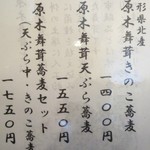 形県北産
原木舞茸きのこ蕎麦
一四〇〇円
原木舞茸天ぷら蕎麦
一五五〇円
原木舞茸蕎麦セット
(天ぷら中・きのこ蕎麦
一七五〇円